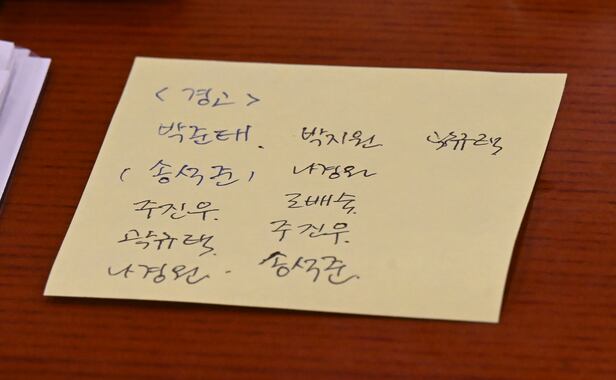 < 경고 >
박준태. 박지원 곽규택
( 송석준 ) 나경원
주진우. 조배숙.
곽규택. 주진우.
나경원. 송석준.